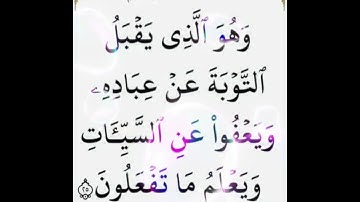 وَهُوَ ٱلَّذِى يَقْبَلُ
ٱلتَّوْبَةَ عَنْ عِبَادِهِۦ
وَيَعْفُوا۟ عَنِ ٱلسَّيِّـَٔاتِ
وَيَعْلَمُ مَا تَفْعَلُونَ ٢٥